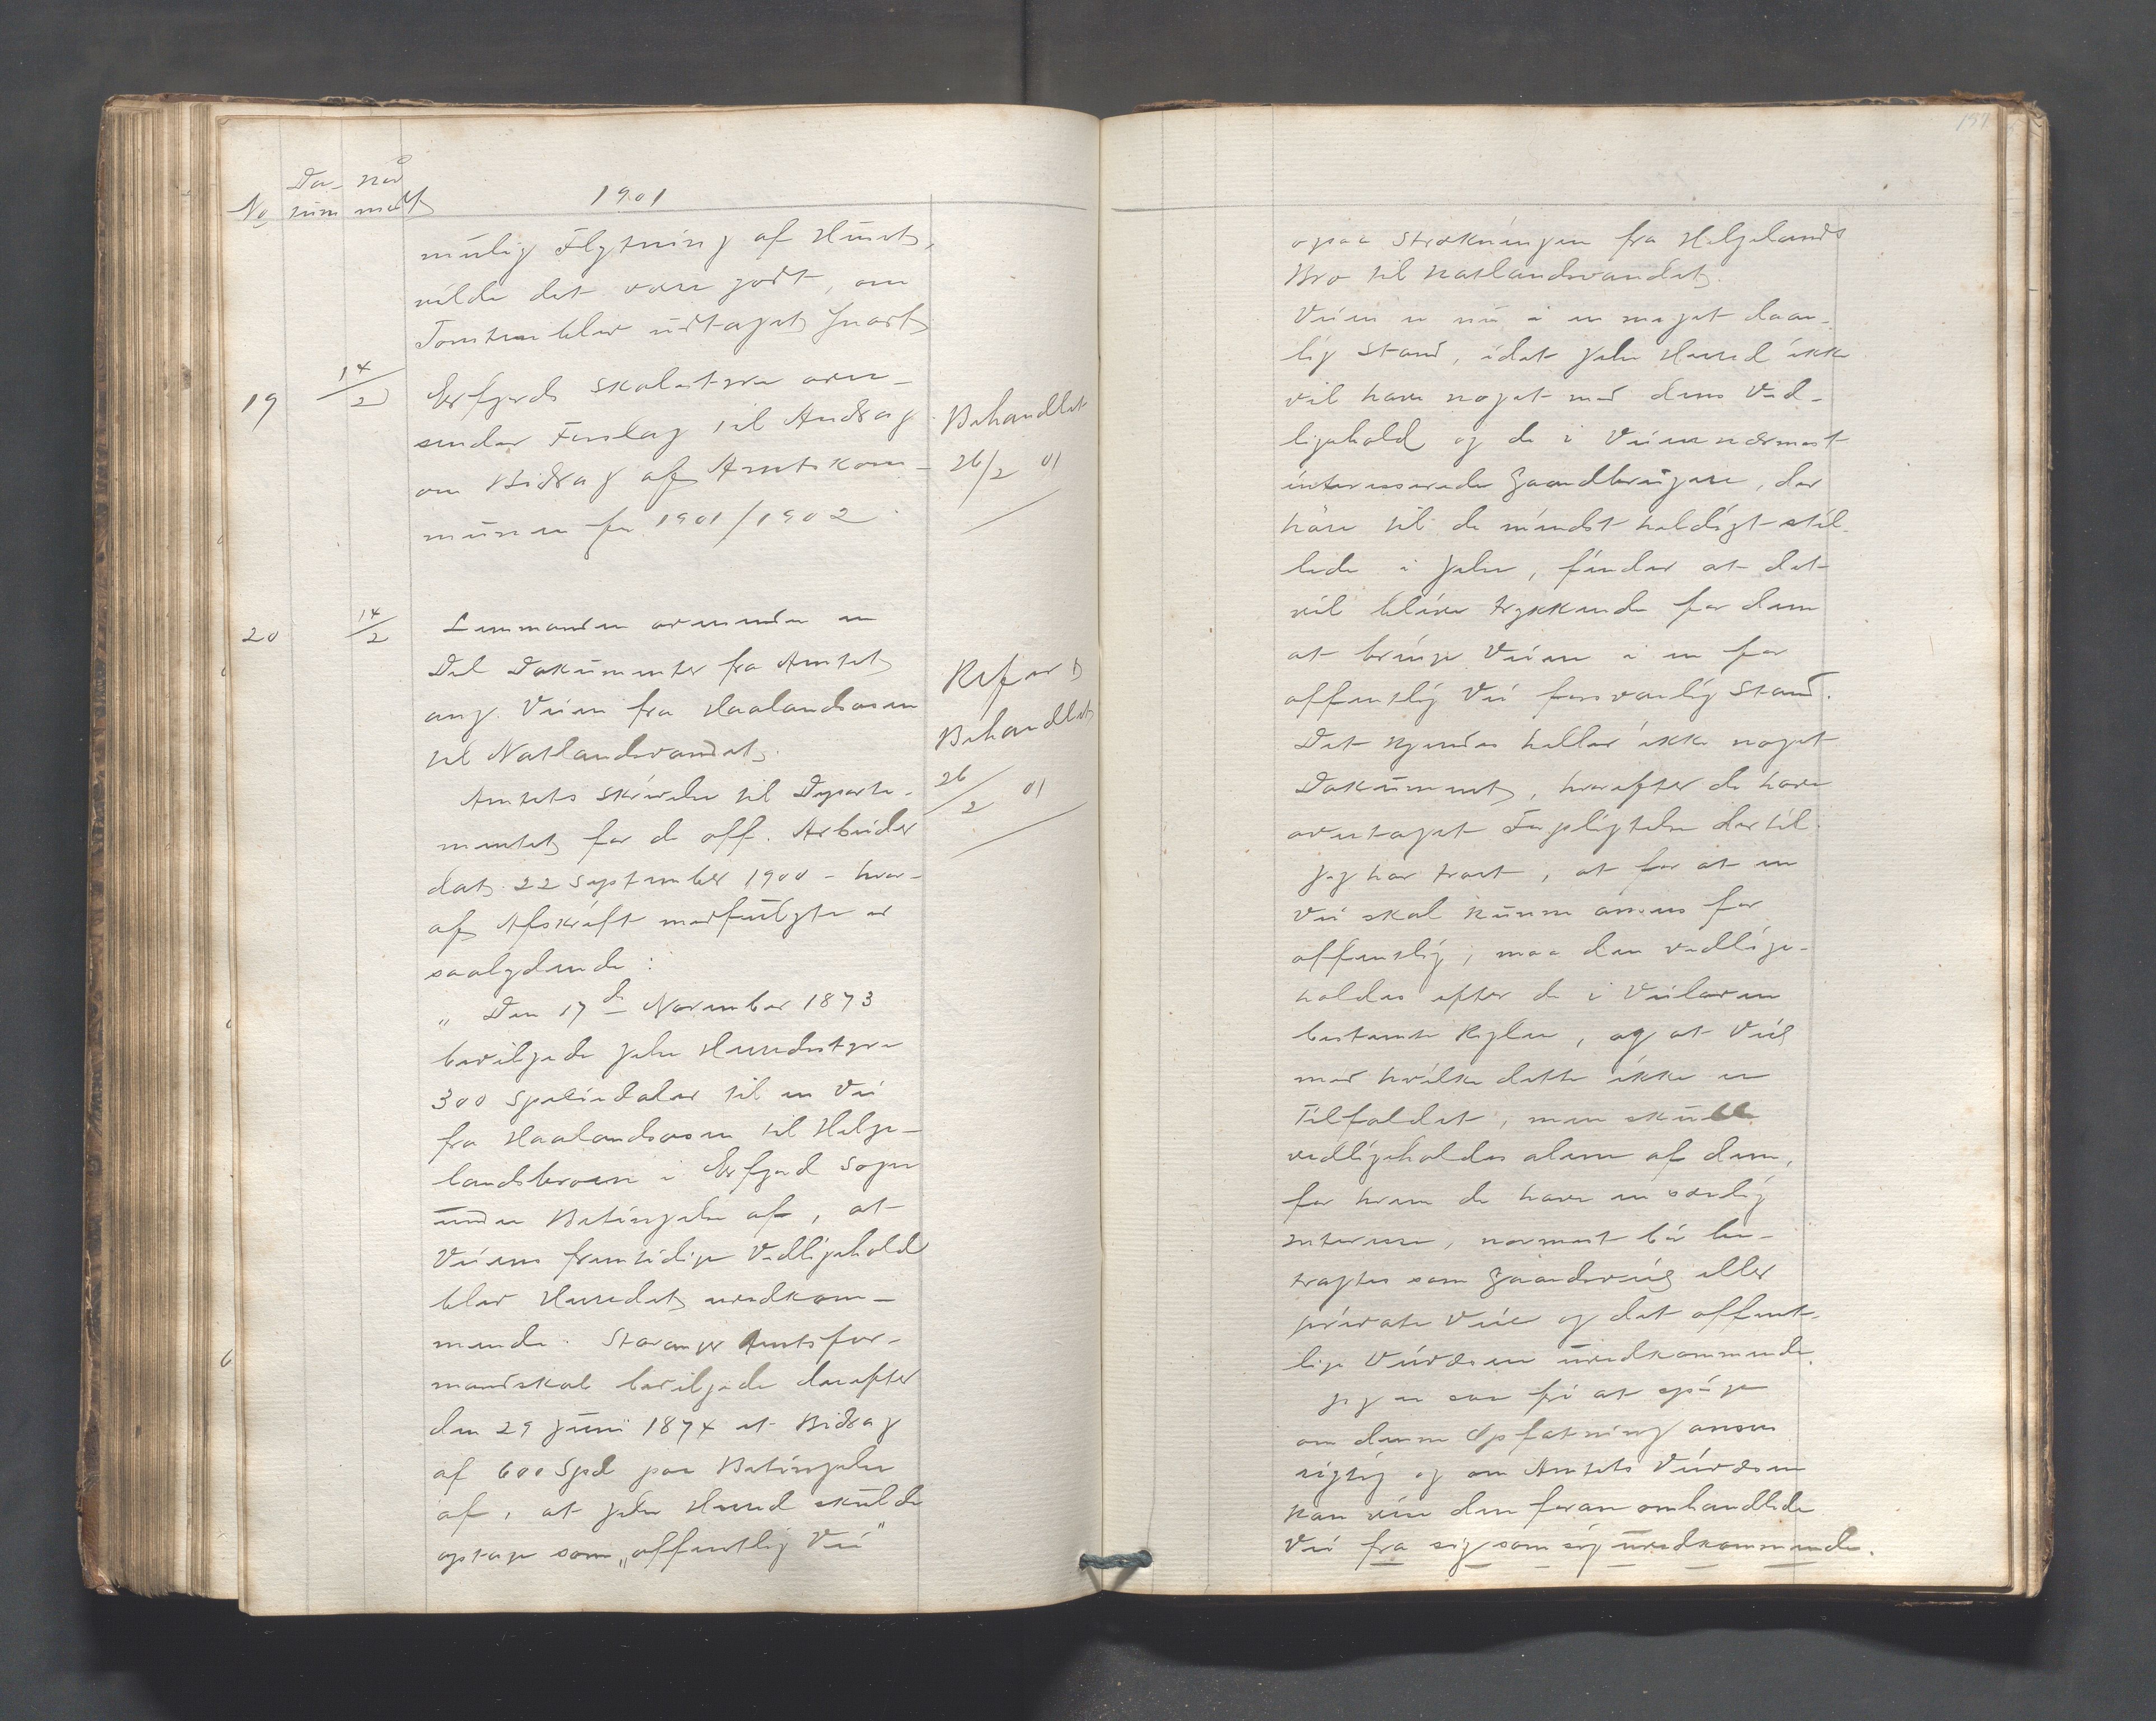 Da- når
No tum mødt
1901
mulig Flytning af Huset,
vilde det være godt, om
Tomten blev udtaget snart
19 14/2 Erfjords Skolestyre over-
sender Forslag til Andrag
om Bidrag af Amtskom-
munen for 1901/1902.
Behandlet
26/2 01
20 14/2 Lensmanden oversender en
Del Dokumenter fra Amtet
ang. Veien fra Haalandsosen
til Natlandsvandet.
Refert
Behandlet
26/2 01
Amtets Skrivelse til Departe-
mentet for de off. Arbeider
dat. 22 September 1900 - hvor-
af Afskrift medfulgte er
saalydende:
„ Den 17de November 1873
bevilgede Jelse Herredsstyre
300 Speciedaler til en Vei
fra Haalandsosen til Helge-
landsbroen i Erfjord Sogn
under Betingelse af, at
Veiens fremtidige Vedligehold
blev Herredet uvedkom-
mende. Stavanger Amtsfor-
mandskab bevilgede derefter
den 29 Juni 1874 et Bidrag
af 600 Spd paa Betingelse
af, at Jelse Herred skulde
optage som „offentlig Vei"
ogsaa Strækningen fra Helgelands
Bro til Natlandsvandet.
Veien er nu i en meget daar-
lig Stand, idet Jelse Herred ikke
vil have noget med dens Ved-
ligehold og de i Veien nærmest
interesserede Gaardbrugere, der
höre til de mindst heldigt stil-
lede i Jelse, finder at det
vil blive trykkende for dem
at bringe Veien i en for
offentlig Vei forsvarlig Stand.
Det kjendes heller ikke noget
Dokument, hvorefter de have
overtaget Forpligtelse dertil.
Jeg har troet, at for at en
Vei skal kunne ansees for
offentlig, maa den vedlige-
holdes efter de i Veiloven
bestemte Regler, og at Veie
med hvilke dette ikke er
Tilfældet, men skulle
vedligeholdes alene af dem,
for hvem de have en særlig
Interesse, nærmest bör be-
tragtes som Gaardsveie eller
private Veie og det offent-
lige Veivæsen uvedkommende.
Jeg er saa fri at spörge
om denne Opfatning ansees
rigtig og om Amtets Veivæsen
kan vise den foran omhandlede
Vei fra sig som sig uvedkommende.